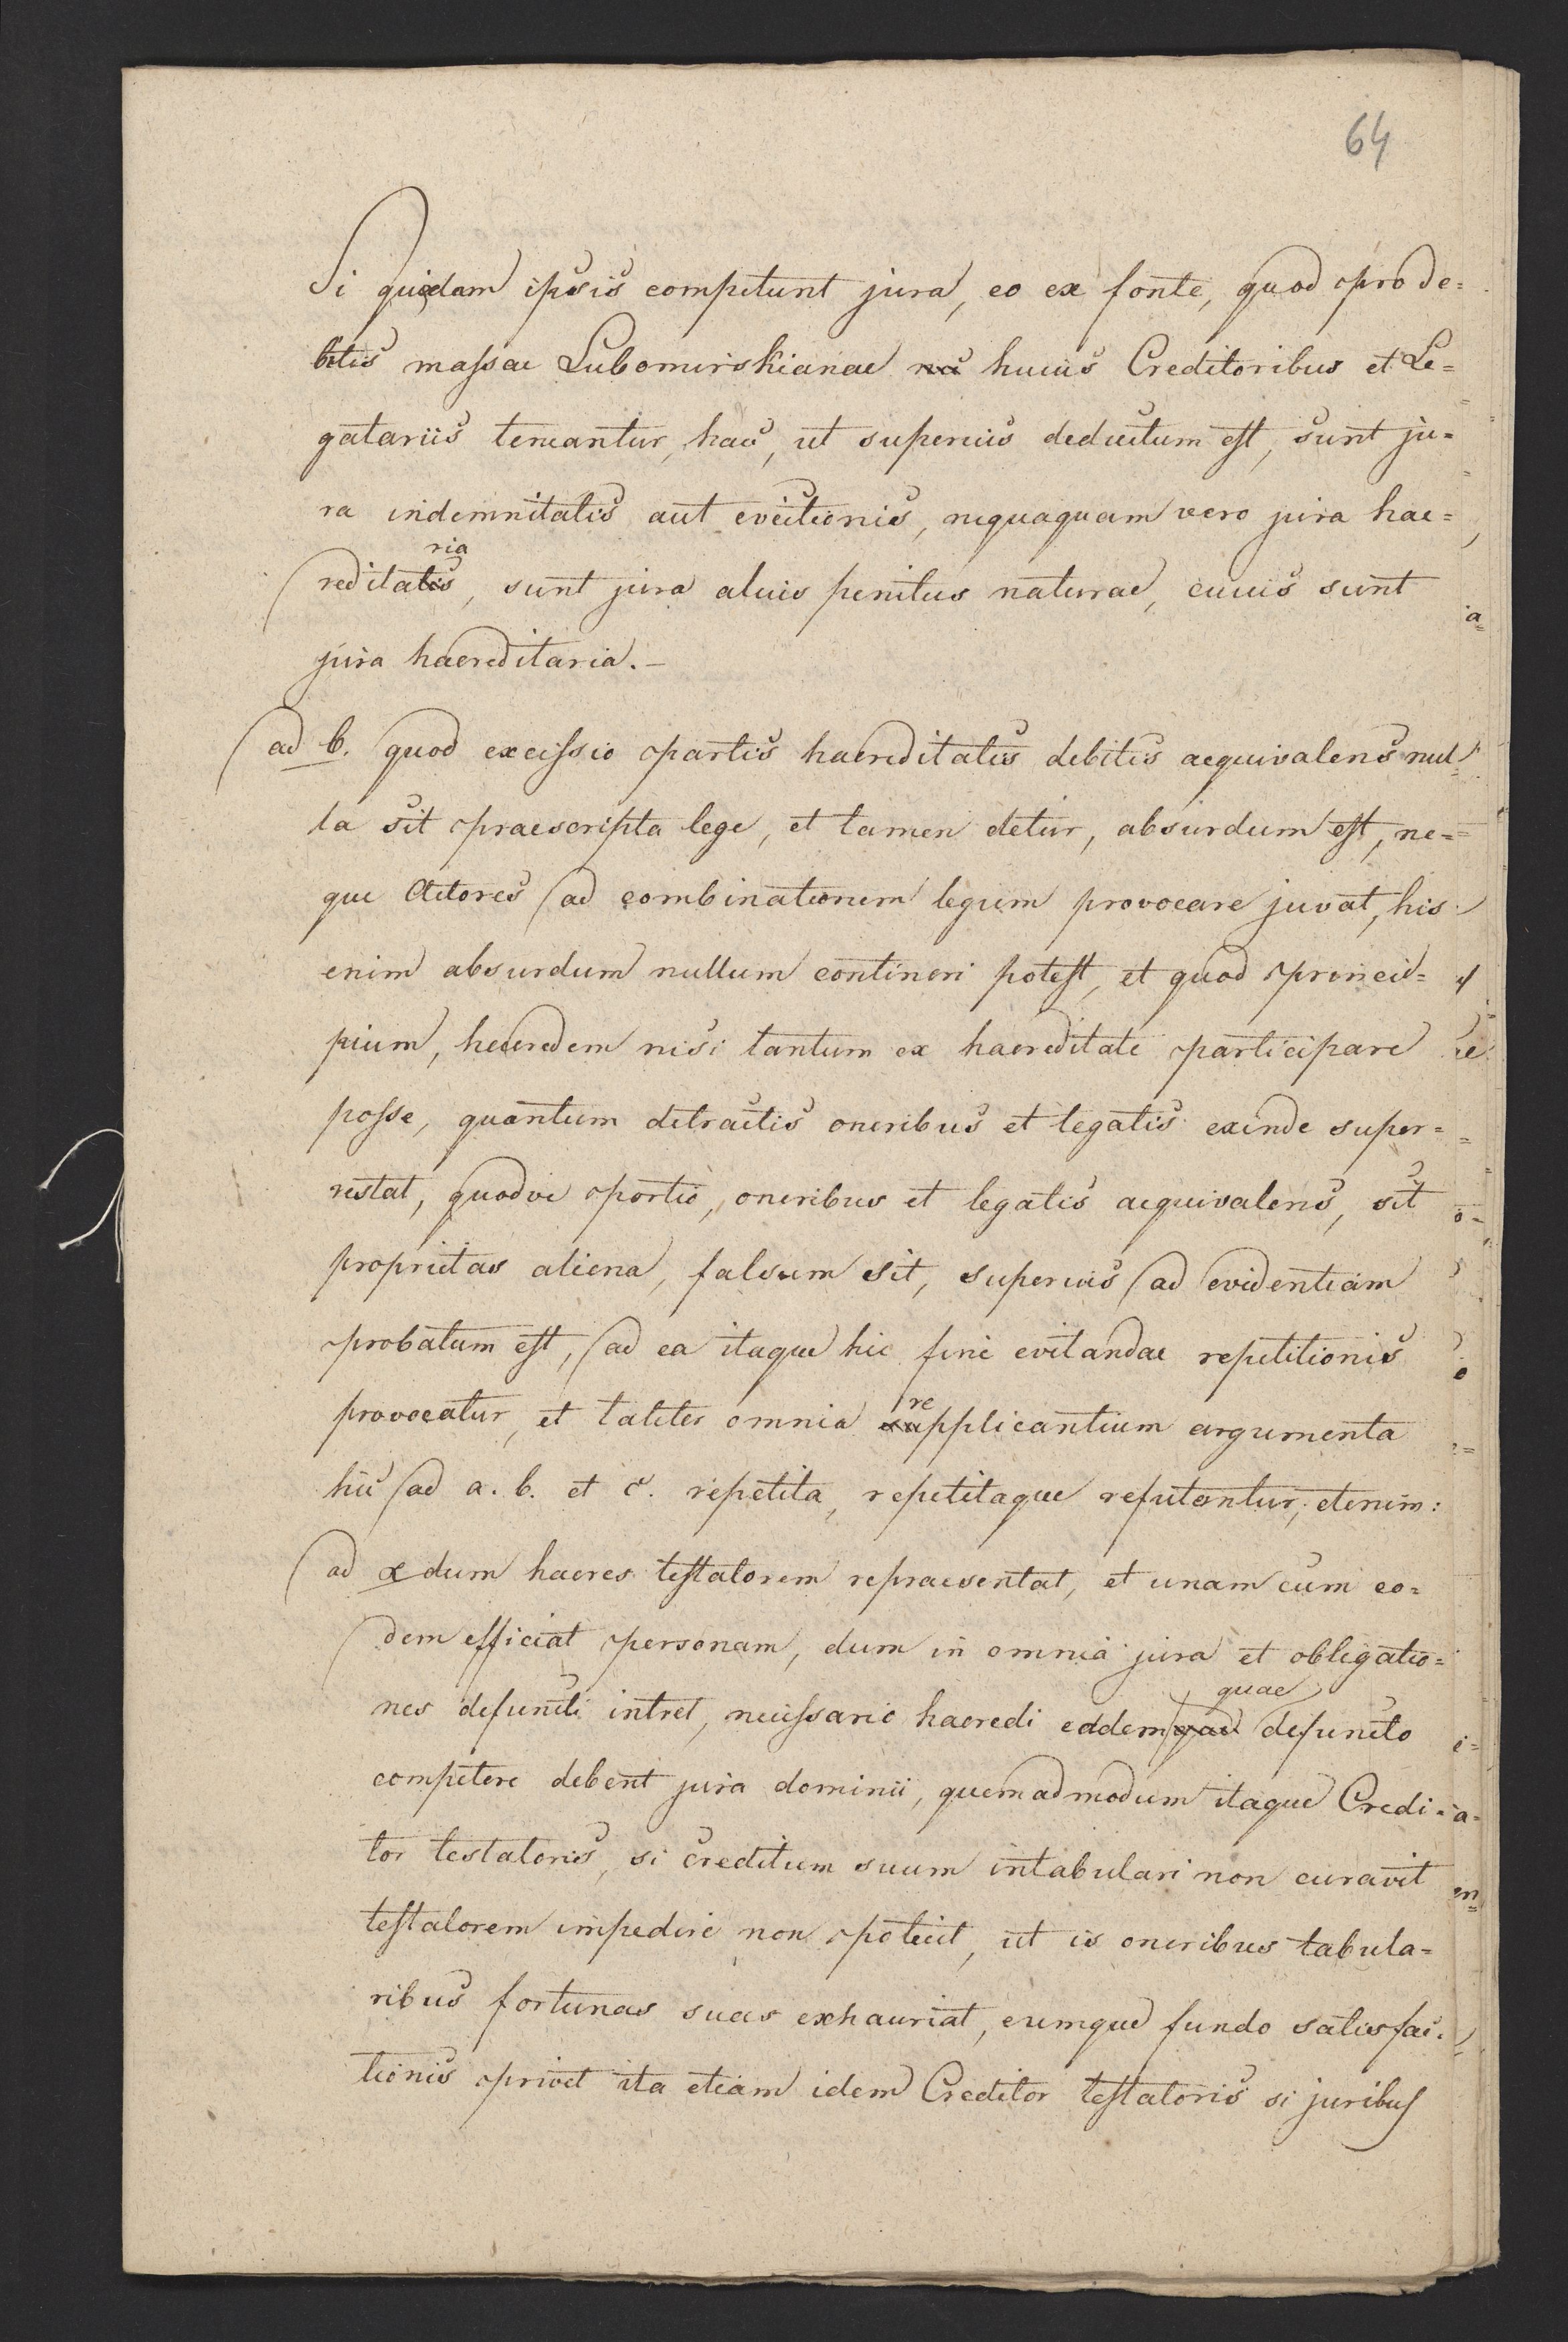 64
Si quidam ipsis competunt jura, eo ex fonte, quod pro de=
bitis massae Lubomirskianae huius Creditoribus et Le=
gatariis teneantur, haec, ut superius deductum est, sunt ju=
ra indemnitatis aut evictionis, nequaquam vero jura hae=
ria
reditatis, sunt jura alius penitus naturae, cuius sunt
jura haereditaria.-
ad b. quod excissio partis haereditatis debitis aequivalens nul=
la sit praescripta lege, et tamen detur, absurdum est, ne=
que Actores ad combinationem legum provocare juvat, his
enim absurdum nullum contineri potest, et quod princi=
pium, haeredem nisi tantum ex haereditate participare
posse, quantum detractis oneribus et legatis exinde super=
restat, quodve portio, oneribus et legatis aequivalens, sit
proprietas aliena, falsum sit, superius ad evidentiam
probatum est, ad ea itaque hic fine evitandae repetitionis
provocatur, et taliter omnia
re
supplicantium argumenta
huc ad a. b. et c. repetita, repetitaque refutantur, etenim:
ad α dum haeres testatorem repraesentat, et unam cum eo=
dem efficiat personam, dum in omnia jura et obligatio=
quae
nes defuncti intret, necessario haeredi eadem defuncto
competere debent jura dominii, quemadmodum itaque Credi=
tor testatoris, si creditum suum intabulari non curavit
testatorem impedire non potuit, ut is oneribus tabula=
ribus fortunas suas exhauriat, eumque fundo satisfac=
tionis privet ita etiam idem Creditor testatoris si juribus